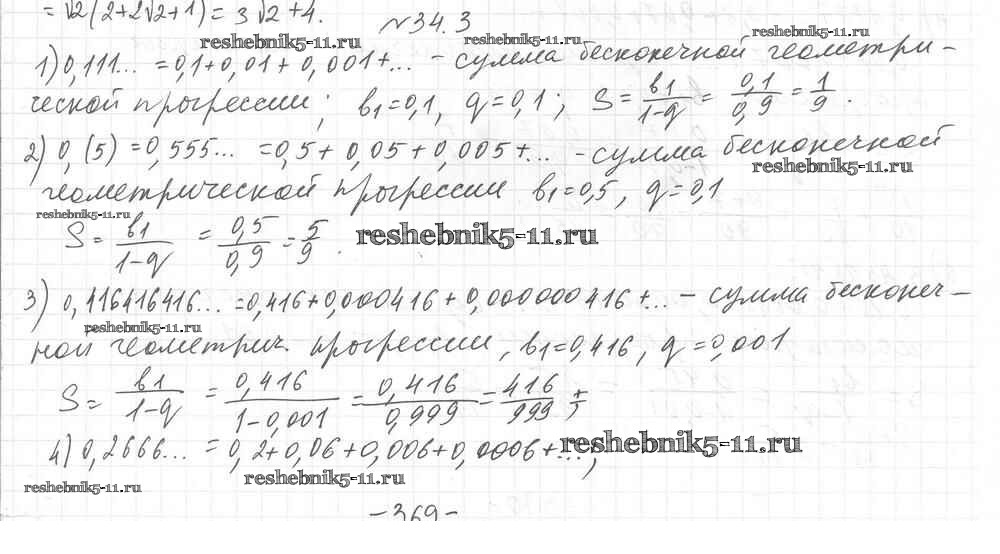 = √2(2+2√2+1) = 3√2+4.
№34.3
reshebnik5-11.ru reshebnik5-11.ru reshebnik5-11.ru
1) 0,111... = 0,1+0,01+0,001+... – сумма бесконечной геометри-
ческой прогрессии; b1=0,1, q=0,1; S = b1/(1-q) = 0,1/0,9 = 1/9.
2) 0,(5) = 0,555... = 0,5+0,05+0,005+... – сумма бесконечной
reshebnik5-11.ru
геометрической прогрессии b1=0,5, q=0,1
reshebnik5-11.ru
S = b1/(1-q) = 0,5/0,9 = 5/9.
reshebnik5-11.ru
3) 0,416416416... = 0,416+0,000416+0,000000416+... – сумма бесконеч-
reshebnik5-11.ru
ной геометрич. прогрессии, b1=0,416, q=0,001
S = b1/(1-q) = 0,416/(1-0,001) = 0,416/0,999 = 416/999
4) 0,2666... = 0,2+0,06+0,006+0,0006+...,
reshebnik5-11.ru
reshebnik5-11.ru reshebnik5-11.ru
-369-